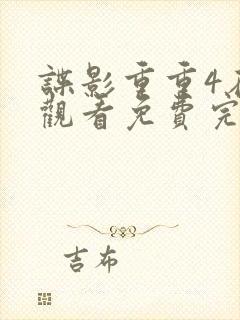 諜影重重4
觀看免費完
吉布